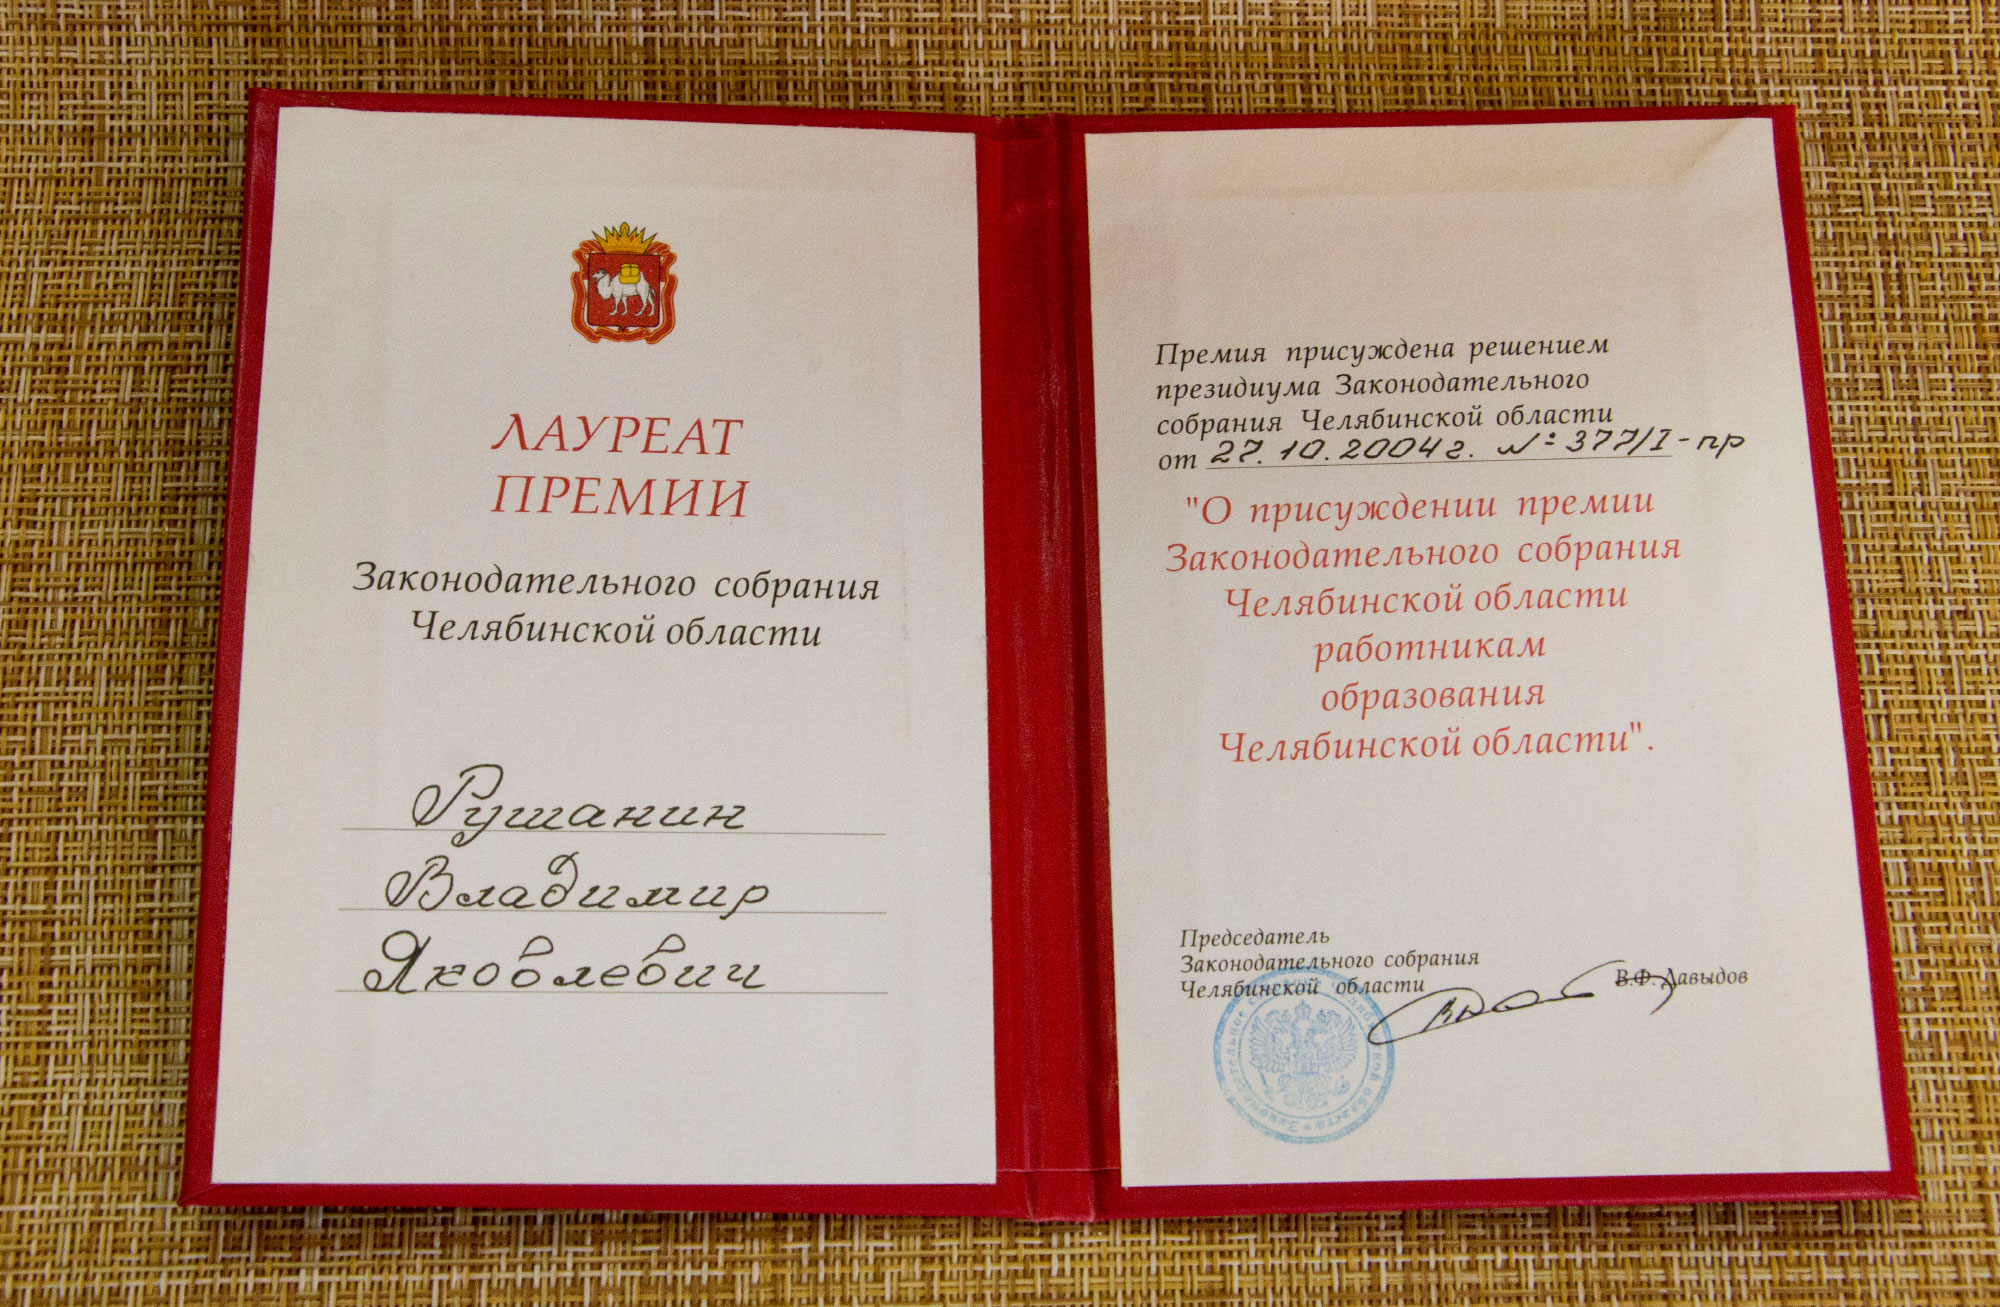 ЛАУРЕАТ
ПРЕМИИ
Законодательного собрания
Челябинской области
Рушанин
Владимир
Яковлевич
Премия присуждена решением
президиума Законодательного
собрания Челябинской области
от 27.10.2004 г. № 377/I-пр
"О присуждении премии
Законодательного собрания
Челябинской области
работникам
образования
Челябинской области".
Председатель
Законодательного собрания
Челябинской области
В.Ф. Давыдов